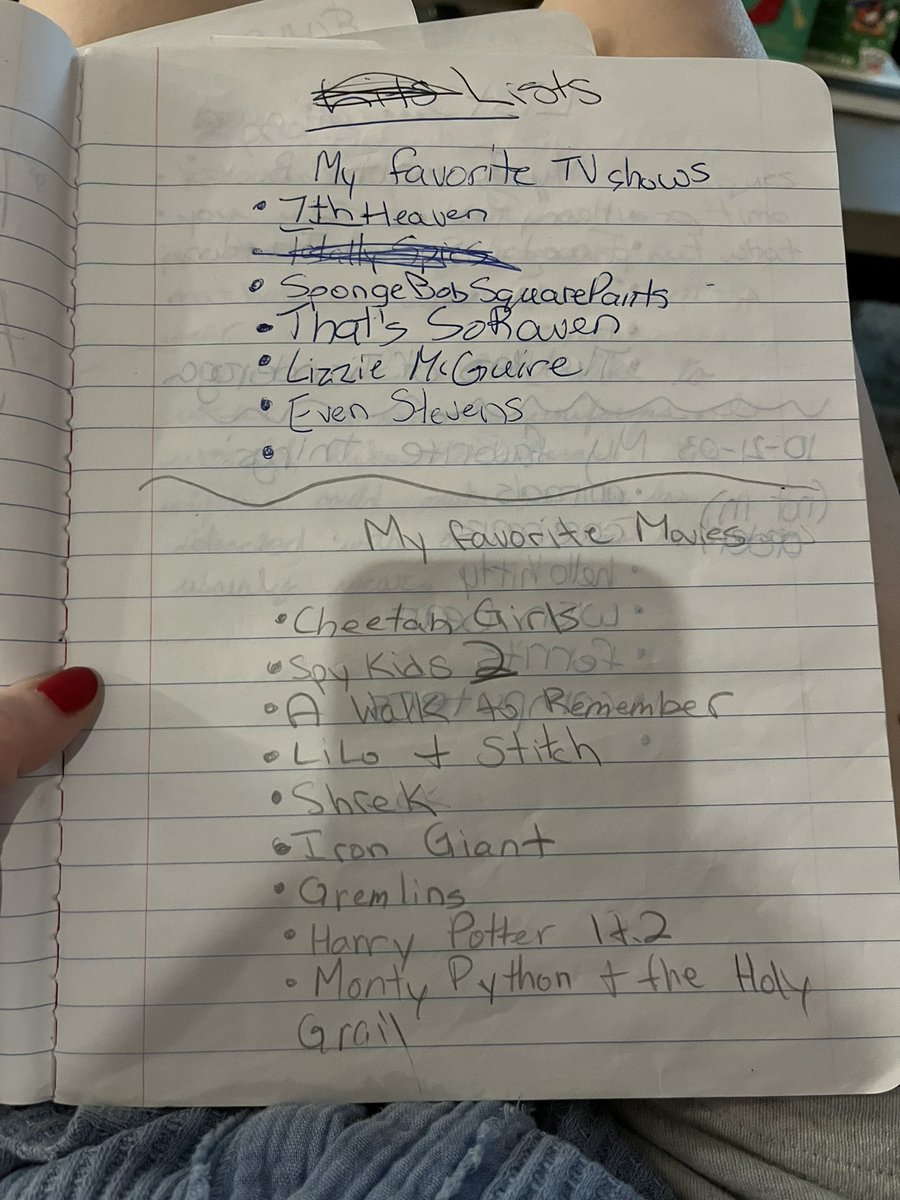 Lists
My favorite TV shows
• 7th Heaven
• Totally Spies
• SpongeBob SquarePants
• That's So Raven
• Lizzie McGuire
• Even Stevens
•
My favorite Movies
• Cheetah Girls
• Spy Kids 2
• A Walk to Remember
• Lilo + Stitch
• Shrek
• Iron Giant
• Gremlins
• Harry Potter 1+2
• Monty Python + the Holy
Grail